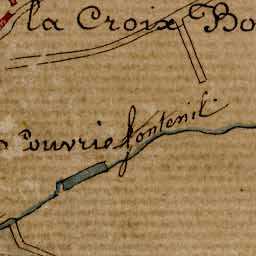 la Croix Bo
Couvrie fontenil.